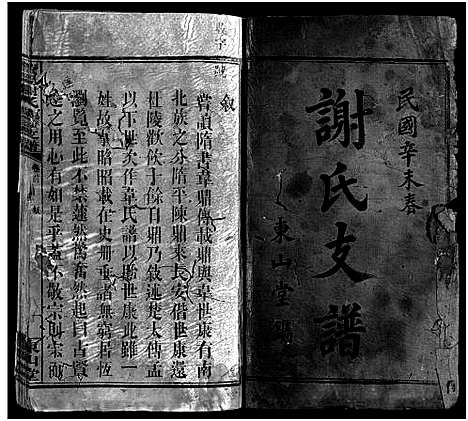 民國辛未春
謝氏支譜
東山堂
敘
嘗讀隋書韋鼎傳載鼎與韋世康有南
北族之分隋平陳鼎來長安借世康還
杜陵歡飲十餘日鼎乃敘述楚太傅孟
以下世次作韋氏譜以貽世康此雖一
姓故事昭昭載在史冊垂諸無窮居恆
瀏覽至此不禁蓬然興奮然起曰古賢
達之用心有如是乎蓋不敬宗則宗